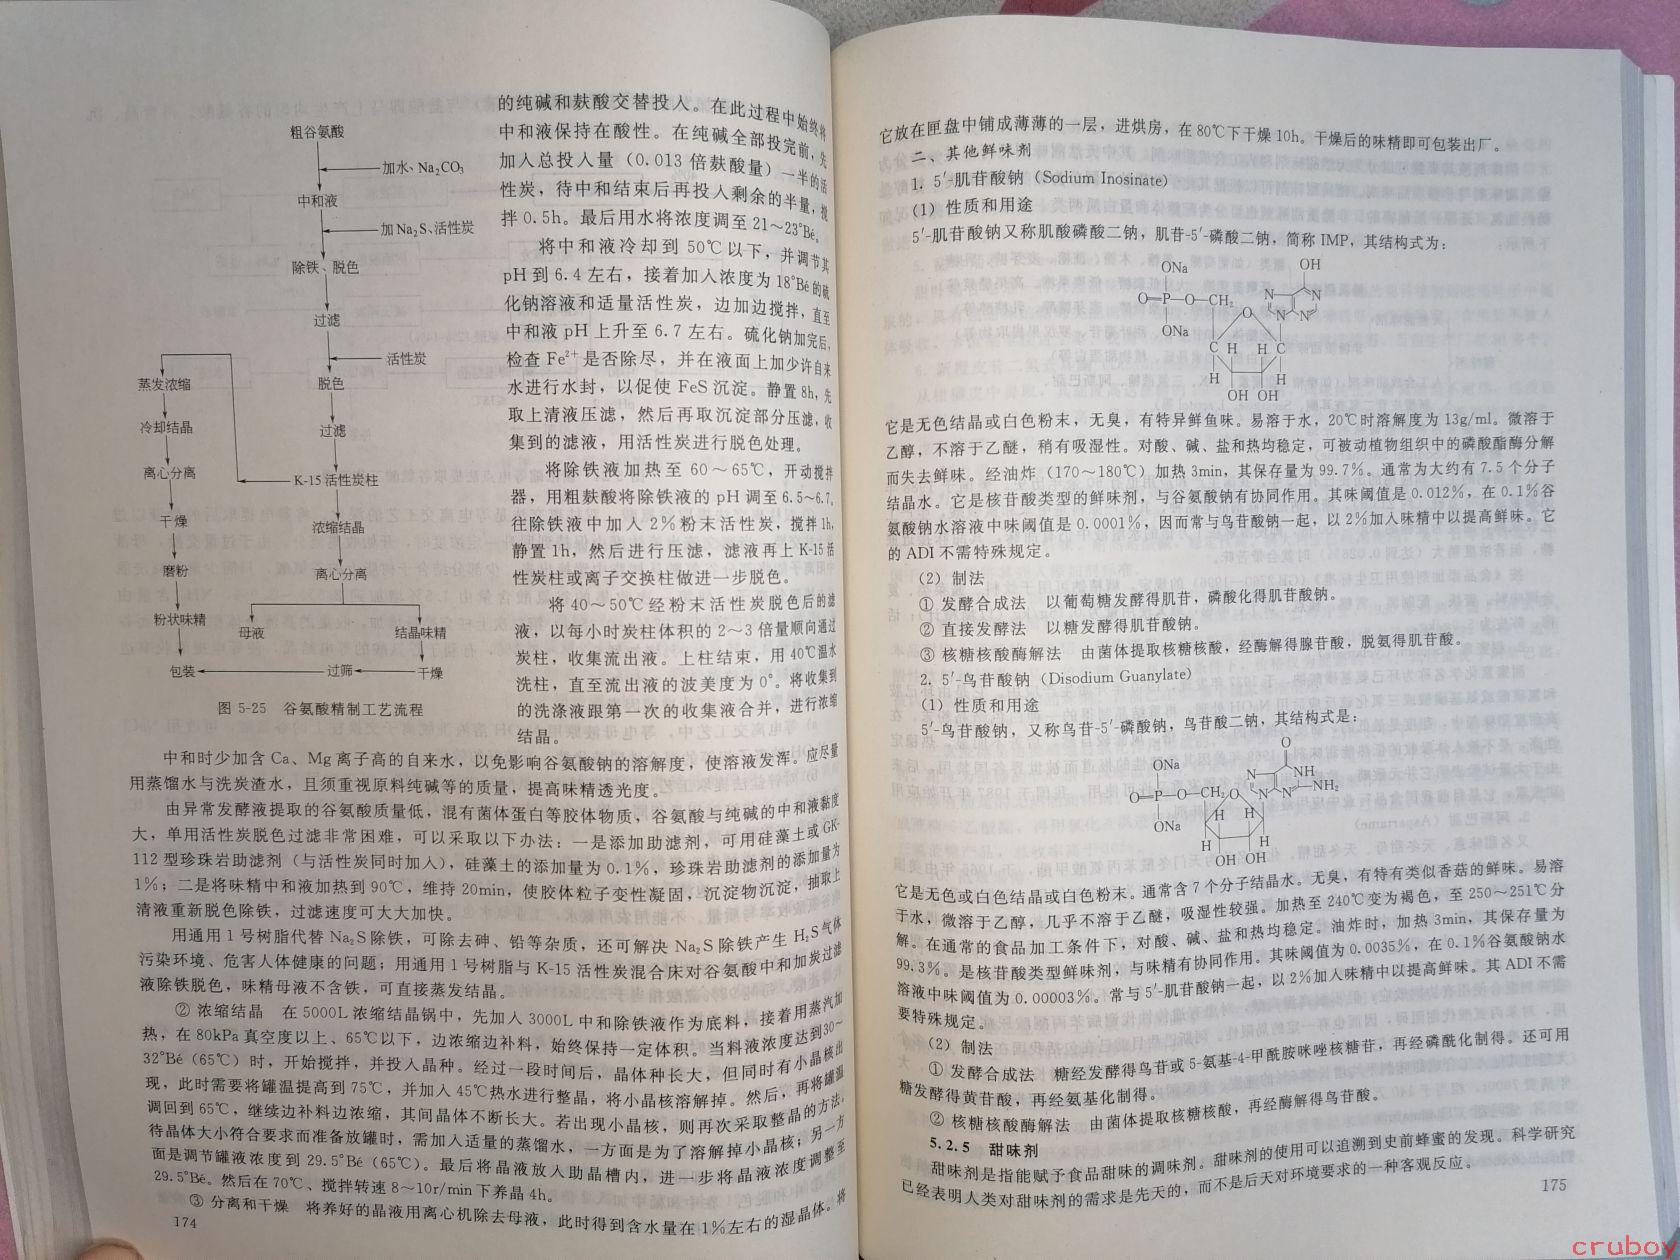 粗谷氨酸
加水、Na₂CO₃
中和液
加Na₂S、活性炭
除铁、脱色
过滤
活性炭
蒸发浓缩
脱色
冷却结晶
过滤
离心分离
K-15活性炭柱
干燥
浓缩结晶
磨粉
离心分离
粉状味精
母液
结晶味精
包装
过筛
干燥
图 5-25 谷氨酸精制工艺流程
的纯碱和麸酸交替投入。在此过程中始终将
中和液保持在酸性。在纯碱全部投完前，先
加入总投入量（0.013 倍麸酸量）一半的活
性炭，待中和结束后再投入剩余的半量，搅
拌 0.5h。最后用水将浓度调至 21～23°Bé。
将中和液冷却到 50℃以下，并调节其
pH 到 6.4 左右，接着加入浓度为 18°Bé 的硫
化钠溶液和适量活性炭，边加边搅拌，直至
中和液 pH 上升至 6.7 左右。硫化钠加完后，
检查 Fe²⁺ 是否除尽，并在液面上加少许自来
水进行水封，以促使 FeS 沉淀。静置 8h，先
取上清液压滤，然后再取沉淀部分压滤，收
集到的滤液，用活性炭进行脱色处理。
将除铁液加热至 60～65℃，开动搅拌
器，用粗麸酸将除铁液的 pH 调至 6.5～6.7，
往除铁液中加入 2％粉末活性炭，搅拌 1h，
静置 1h，然后进行压滤，滤液再上 K-15 活
性炭柱或离子交换柱做进一步脱色。
将 40～50℃经粉末活性炭脱色后的滤
液，以每小时炭柱体积的 2～3 倍量顺向通过
炭柱，收集流出液。上柱结束，用 40℃温水
洗柱，直至流出液的波美度为 0°。将收集到
的洗涤液跟第一次的收集液合并，进行浓缩
结晶。
中和时少加含 Ca、Mg 离子高的自来水，以免影响谷氨酸钠的溶解度，使溶液发浑。应尽量
用蒸馏水与洗炭渣水，且须重视原料纯碱等的质量，提高味精透光度。
由异常发酵液提取的谷氨酸质量低，混有菌体蛋白等胶体物质，谷氨酸与纯碱的中和液黏度
大，单用活性炭脱色过滤非常困难，可以采取以下办法：一是添加助滤剂，可用硅藻土或 GK-
112 型珍珠岩助滤剂（与活性炭同时加入），硅藻土的添加量为 0.1％，珍珠岩助滤剂的添加量为
1％；二是将味精中和液加热到 90℃，维持 20min，使胶体粒子变性凝固，沉淀物沉淀，抽取上
清液重新脱色除铁，过滤速度可大大加快。
用通用 1 号树脂代替 Na₂S 除铁，可除去砷、铅等杂质，还可解决 Na₂S 除铁产生 H₂S 气体
污染环境、危害人体健康的问题；用通用 1 号树脂与 K-15 活性炭混合床对谷氨酸中和加炭过滤
液除铁脱色，味精母液不含铁，可直接蒸发结晶。
② 浓缩结晶 在 5000L 浓缩结晶锅中，先加入 3000L 中和除铁液作为底料，接着用蒸汽加
热，在 80kPa 真空度以上、65℃以下，边浓缩边补料，始终保持一定体积。当料液浓度达到 30～
32°Bé（65℃）时，开始搅拌，并投入晶种。经过一段时间后，晶体种长大，但同时有小晶核出
现，此时需要将罐温提高到 75℃，并加入 45℃热水进行整晶，将小晶核溶解掉。然后，再将罐温
调回到 65℃，继续边补料边浓缩，其间晶体不断长大。若出现小晶核，则再次采取整晶的方法。
待晶体大小符合要求而准备放罐时，需加入适量的蒸馏水，一方面是为了溶解掉小晶核；另一方
面是调节罐液浓度到 29.5°Bé（65℃）。最后将晶液放入助晶槽内，进一步将晶液浓度调整至
29.5°Bé。然后在 70℃、搅拌转速 8～10r/min 下养晶 4h。
③ 分离和干燥 将养好的晶液用离心机除去母液，此时得到含水量在 1％左右的湿晶体。将
174
它放在匣盘中铺成薄薄的一层，进烘房，在 80℃下干燥 10h。干燥后的味精即可包装出厂。
二、其他鲜味剂
1. 5′-肌苷酸钠（Sodium Inosinate）
(1) 性质和用途
5′-肌苷酸钠又称肌酸磷酸二钠，肌苷-5′-磷酸二钠，简称 IMP，其结构式为：
ONa OH
O=P—O—CH₂ O N N N N
ONa
C H H C
H H
OH OH
它是无色结晶或白色粉末，无臭，有特异鲜鱼味。易溶于水，20℃时溶解度为 13g/ml。微溶于
乙醇，不溶于乙醚，稍有吸湿性。对酸、碱、盐和热均稳定，可被动植物组织中的磷酸酯酶分解
而失去鲜味。经油炸（170～180℃）加热 3min，其保存量为 99.7％。通常为大约有 7.5 个分子
结晶水。它是核苷酸类型的鲜味剂，与谷氨酸钠有协同作用。其味阈值是 0.012％，在 0.1％谷
氨酸钠水溶液中味阈值是 0.0001％，因而常与鸟苷酸钠一起，以 2％加入味精中以提高鲜味。它
的 ADI 不需特殊规定。
(2) 制法
① 发酵合成法 以葡萄糖发酵得肌苷，磷酸化得肌苷酸钠。
② 直接发酵法 以糖发酵得肌苷酸钠。
③ 核糖核酸酶解法 由菌体提取核糖核酸，经酶解得腺苷酸，脱氨得肌苷酸。
2. 5′-鸟苷酸钠（Disodium Guanylate）
(1) 性质和用途
5′-鸟苷酸钠，又称鸟苷-5′-磷酸钠，鸟苷酸二钠，其结构式是：
O
ONa N NH
O=P—O—CH₂ O N N NH₂
ONa H H
H H
OH OH
它是无色或白色结晶或白色粉末。通常含 7 个分子结晶水。无臭，有特有类似香菇的鲜味。易溶
于水，微溶于乙醇，几乎不溶于乙醚，吸湿性较强。加热至 240℃变为褐色，至 250～251℃分
解。在通常的食品加工条件下，对酸、碱、盐和热均稳定。油炸时，加热 3min，其保存量为
99.3％。是核苷酸类型鲜味剂，与味精有协同作用。其味阈值为 0.0035％，在 0.1％谷氨酸钠水
溶液中味阈值为 0.00003％。常与 5′-肌苷酸钠一起，以 2％加入味精中以提高鲜味。其 ADI 不需
要特殊规定。
(2) 制法
① 发酵合成法 糖经发酵得鸟苷或 5-氨基-4-甲酰胺咪唑核糖苷，再经磷酰化制得。还可用
糖发酵得黄苷酸，再经氨基化制得。
② 核糖核酸酶解法 由菌体提取核糖核酸，再经酶解得鸟苷酸。
5.2.5 甜味剂
甜味剂是指能赋予食品甜味的调味剂。甜味剂的使用可以追溯到史前蜂蜜的发现。科学研究
已经表明人类对甜味剂的需求是先天的，而不是后天对环境要求的一种客观反应。
175
cruboy